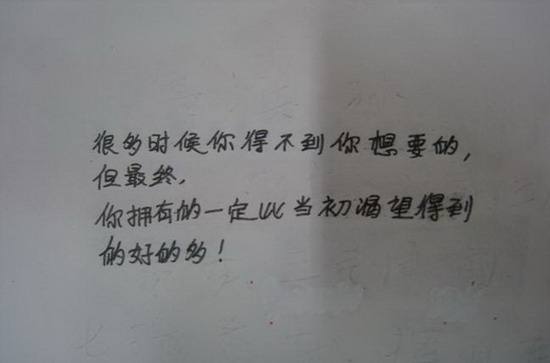 很多时候你得不到你想要的,
但最终.
你拥有的一定比当初渴望得到
的好的多!